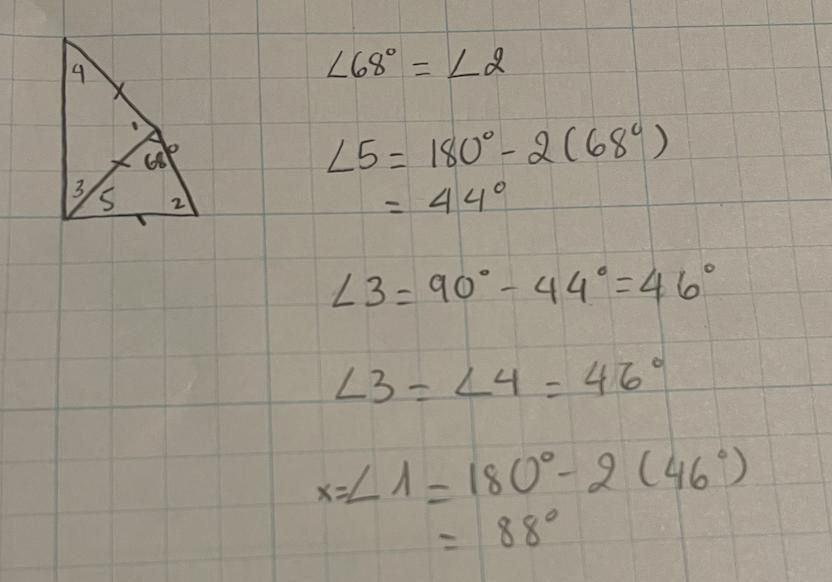 4
1
68°
3
5
2
∠68° = ∠2
∠5 = 180° - 2(68°)
= 44°
∠3 = 90° - 44° = 46°
∠3 = ∠4 = 46°
x = ∠1 = 180° - 2(46°)
= 88°